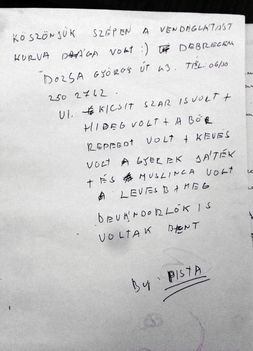 KÖSZÖNJÜK SZÉPEN A VENDÁGLÁTÁST
KURVA DRÁGA VOLT :) DEBRECEN
DOZSA GYÖRGY ÚT 43. TEL: 06/30
250 2762.
UI. KICSIT SZAR IS VOLT +
HIDEG VOLT + A BÓR
REPEDT VOLT + KEVES
VOLT A GYEREK JÁTÉK
+ ÉS MUSLINCA VOLT
A LEVESBE + MEG
BEVÁNDORLÓK IS
VOLTAK BENT
By: PISTA